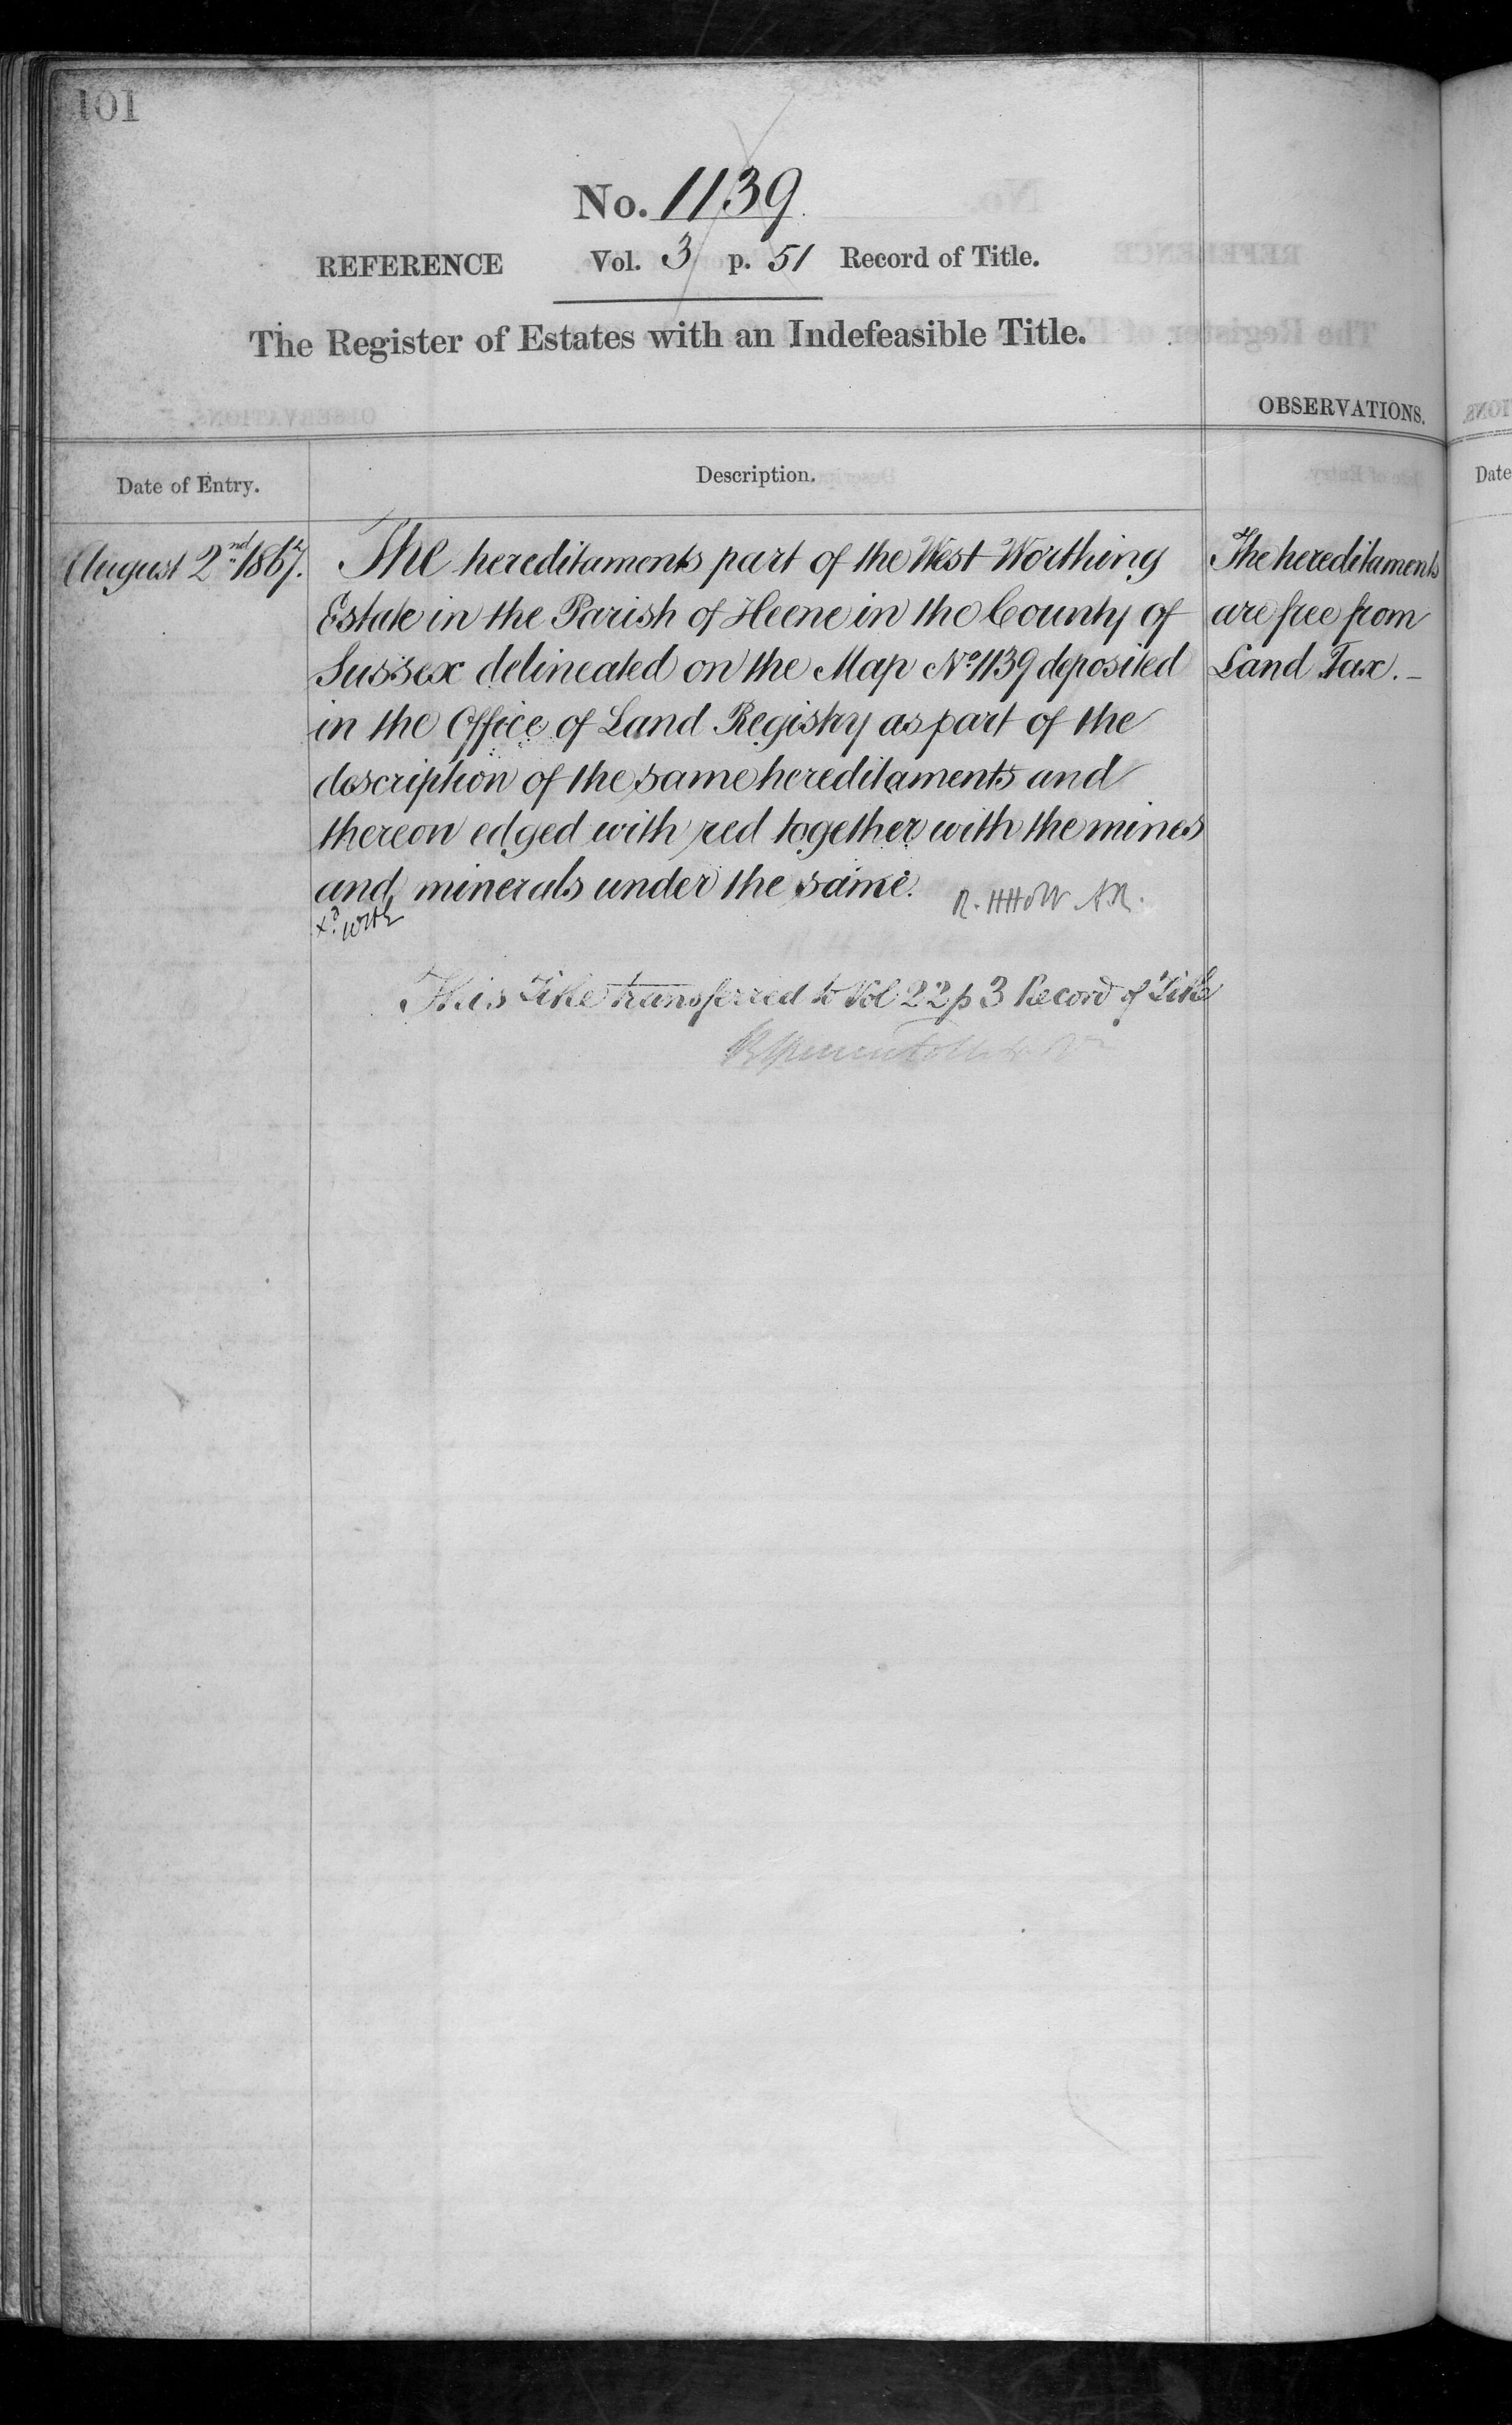 101
No. 1139
REFERENCE Vol. 3 p. 51 Record of Title.
The Register of Estates with an Indefeasible Title.
OBSERVATIONS.
Date of Entry.
Description.
Date
August 2nd 1867.
The hereditaments part of the West Worthing
Estate in the Parish of Heene in the County of
Sussex delineated on the Map No. 1139 deposited
in the Office of Land Registry as part of the
description of the same hereditaments and
thereon edged with red together with the mines
and minerals under the same.
The hereditaments
are free from
Land Tax. -
This Title transferred to Vol 22 p 3 Record of Title